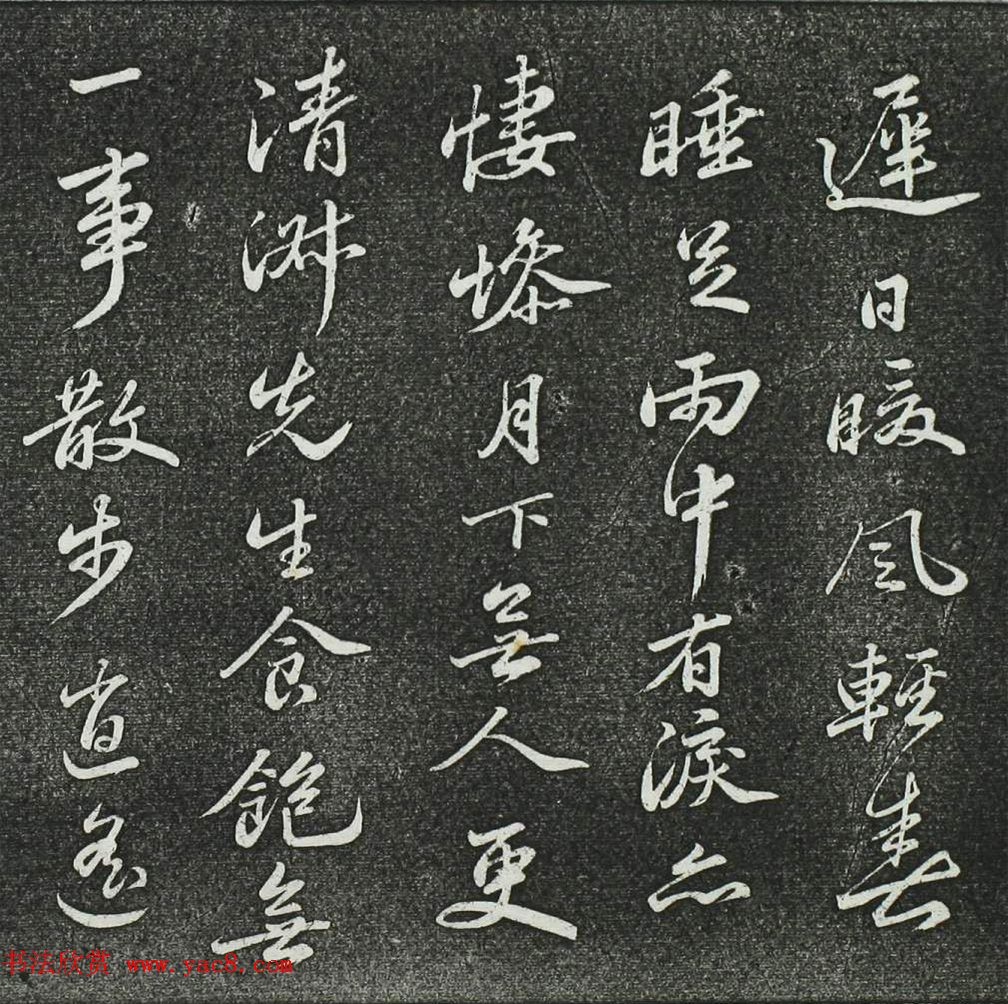 遲日暖風輕春
睡足雨中有淚亦
悽慘月下無人更
清淑先生食飽無
一事散步逍遙
书法欣赏 www.yac8.com